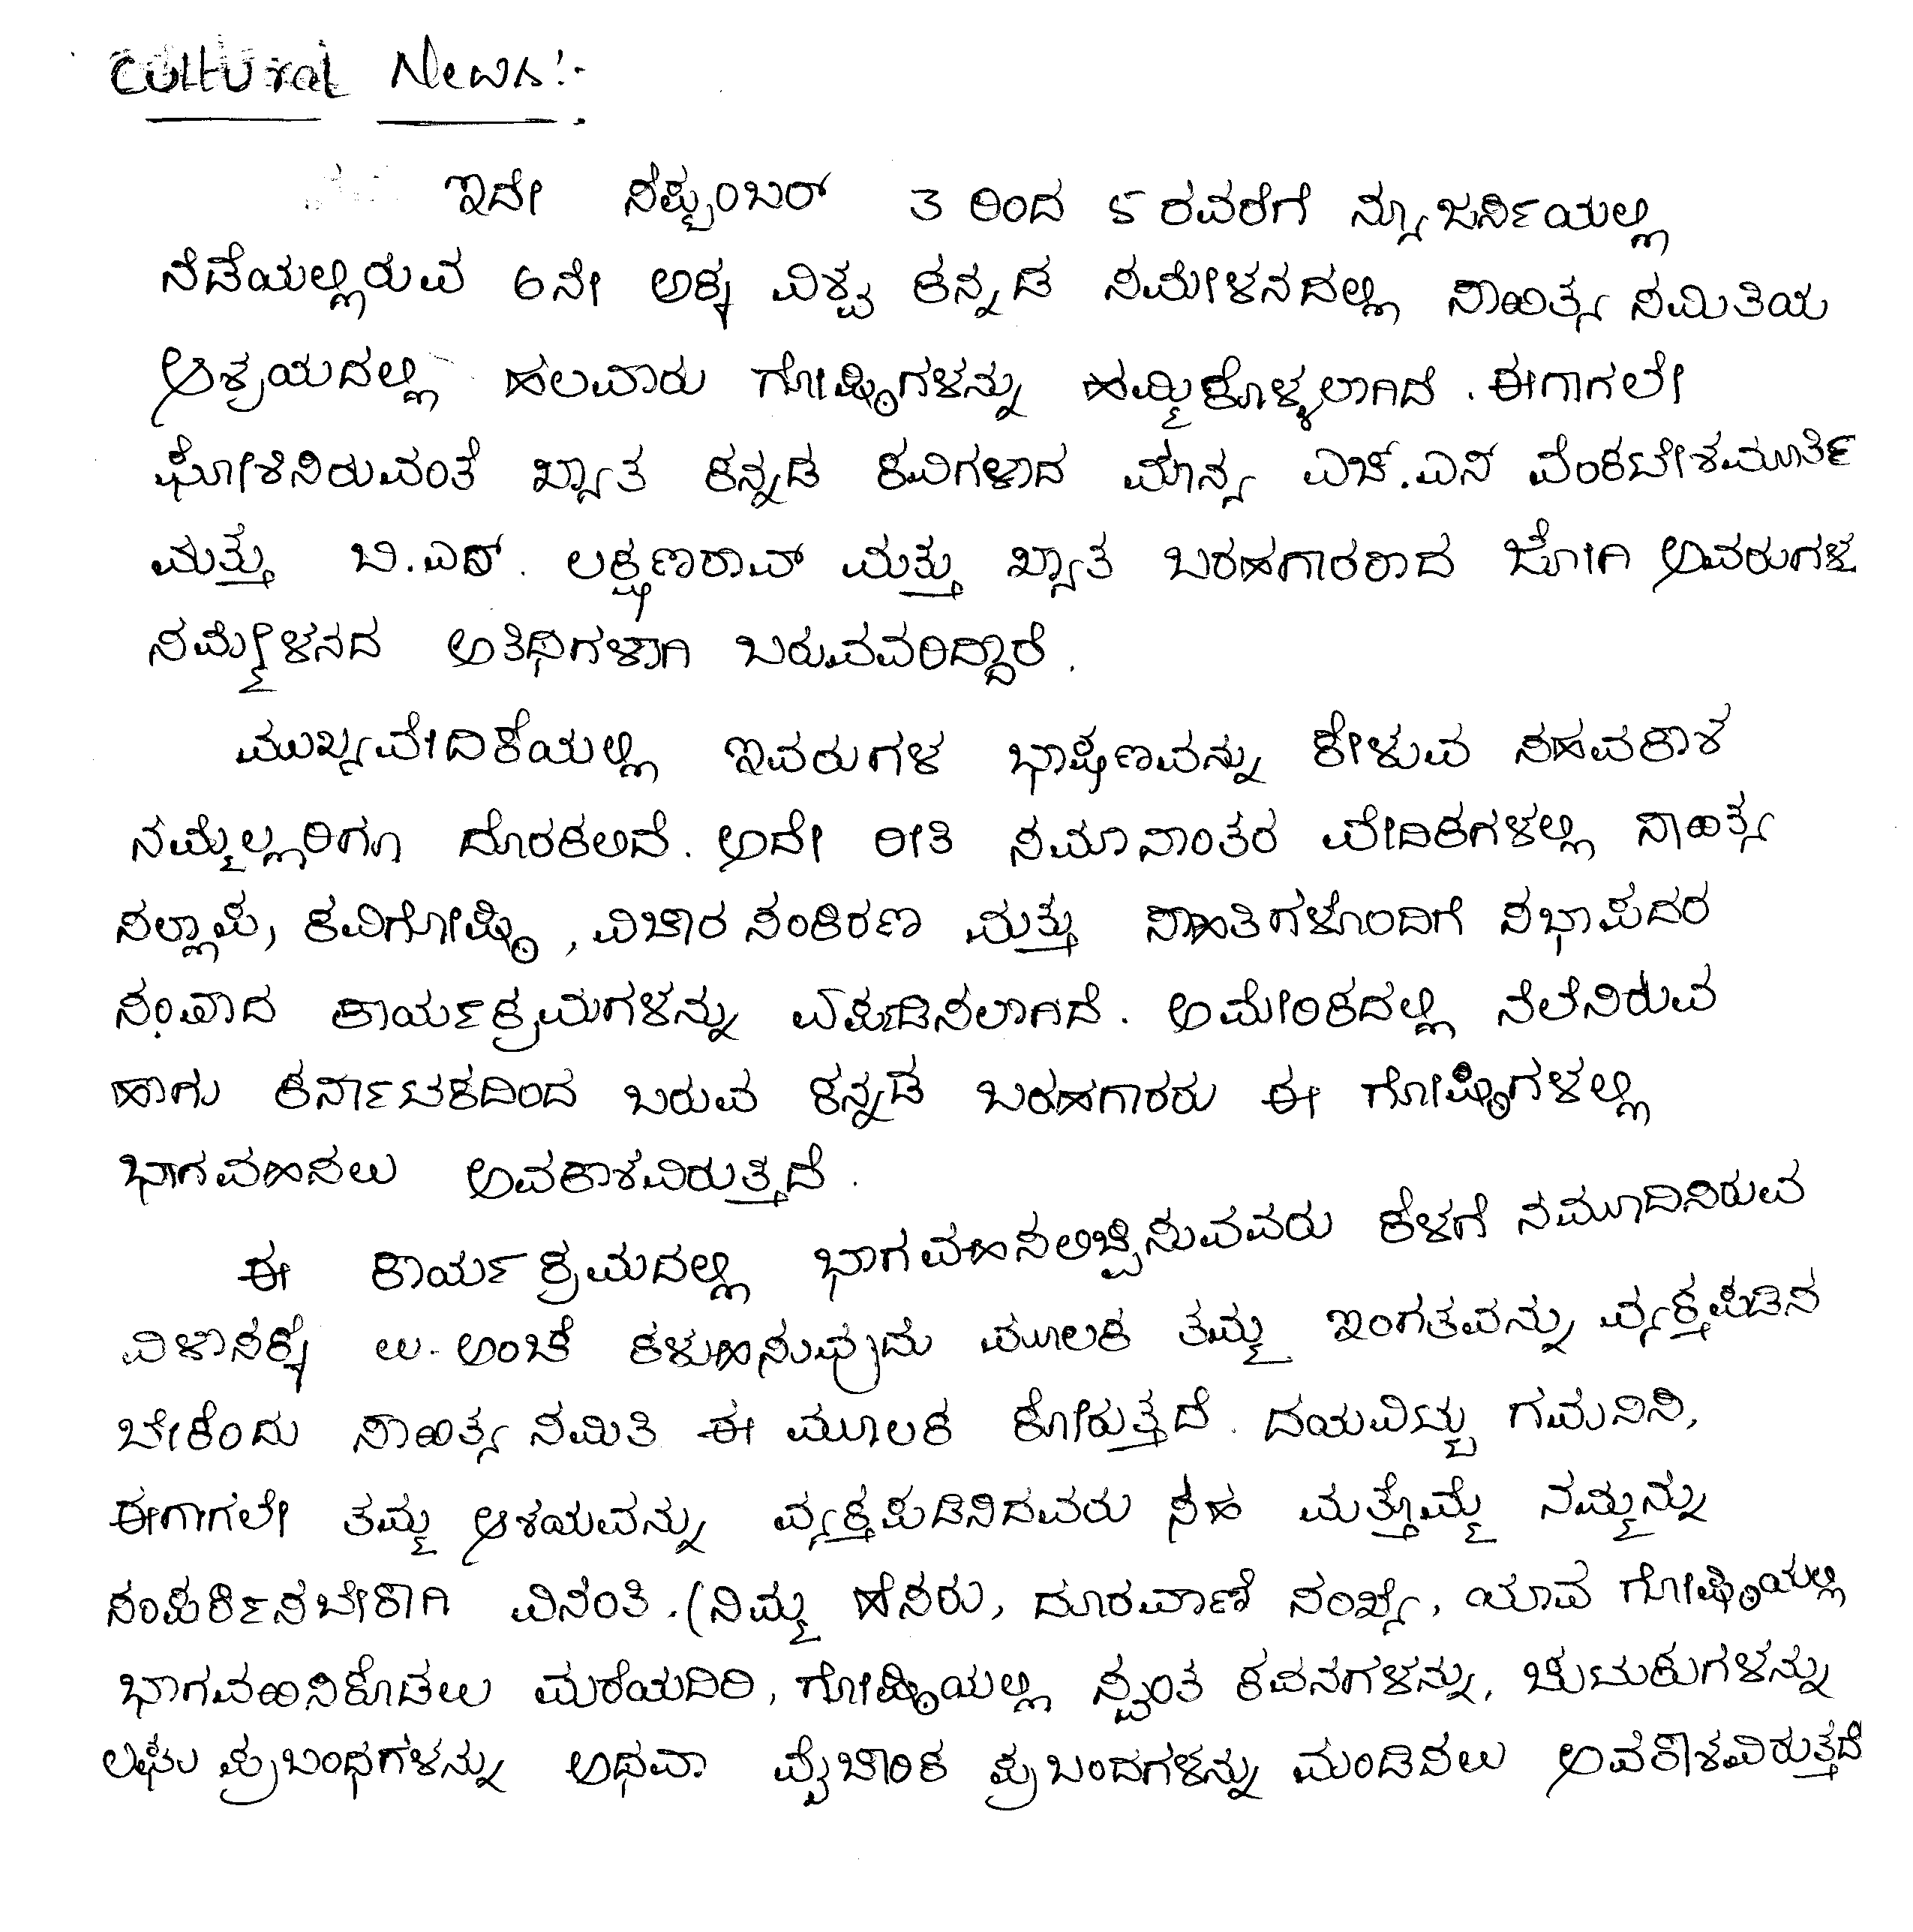 Cultural News:-
ಇದೇ ಸೆಪ್ಟಂಬರ್ 3 ರಿಂದ 5 ರವರೆಗೆ ನ್ಯೂಜರ್ಸಿಯಲ್ಲಿ
ನೆಡೆಯಲ್ಲಿರುವ 6ನೇ ಅಕ್ಕ ವಿಶ್ವ ಕನ್ನಡ ಸಮೇಳನದಲ್ಲಿ ಸಾಹಿತ್ಯ ಸಮಿತಿಯ
ಆಶ್ರಯದಲ್ಲಿ ಹಲವಾರು ಗೋಷ್ಠಿಗಳನ್ನು ಹಮ್ಮಿಕೊಳ್ಳಲಾಗಿದೆ. ಈಗಾಗಲೇ
ಘೋಶಿಸಿರುವಂತೆ ಖ್ಯಾತ ಕನ್ನಡ ಕವಿಗಳಾದ ಮಾನ್ಯ ಎಚ್.ಎಸ್ ವೆಂಕಟೇಶಮೂರ್ತಿ
ಮತ್ತು ಬಿ.ಎರ್. ಲಕ್ಷ್ಮಣರಾವ್ ಮತ್ತು ಖ್ಯಾತ ಬರಹಗಾರರಾದ ಜೋಗಿ ಅವರುಗಳ
ಸಮ್ಮೇಳನದ ಅತಿಥಿಗಳಾಗಿ ಬರುವವರಿದ್ದಾರೆ.
ಮುಖ್ಯವೇದಿಕೆಯಲ್ಲಿ ಇವರುಗಳ ಭಾಷಣವನ್ನು ಕೇಳುವ ಸಹವಕಾಶ
ನಮ್ಮೆಲ್ಲರಿಗೂ ದೊರಕಲಿದೆ. ಅದೇ ರೀತಿ ಸಮಾನಾಂತರ ವೇದಿಕಗಳಲ್ಲಿ ಸಾಹಿತ್ಯ
ಸಲ್ಲಾಪ, ಕವಿಗೋಷ್ಠಿ, ವಿಚಾರ ಸಂಕಿರಣ ಮತ್ತು ಸಾಹಿತಿಗಳೊಂದಿಗೆ ಸಭಾಪದರ
ಸಂವಾದ ಕಾರ್ಯಕ್ರಮಗಳನ್ನು ಏರ್ಪಡಿಸಲಾಗಿದೆ. ಅಮೇರಿಕದಲ್ಲಿ ನೆಲೆಸಿರುವ
ಹಾಗು ಕರ್ನಾಟಕದಿಂದ ಬರುವ ಕನ್ನಡ ಬರಹಗಾರರು ಈ ಗೋಷ್ಠಿಗಳಲ್ಲಿ
ಭಾಗವಹಿಸಲು ಅವಕಾಶವಿರುತ್ತದೆ.
ಈ ಕಾರ್ಯಕ್ರಮದಲ್ಲಿ ಭಾಗವಹಿಸಲಿಚ್ಚಿಸುವವರು ಕೆಳಗೆ ನಮೂದಿಸಿರುವ
ವಿಳಾಸಕ್ಕೆ ಈ-ಅಂಚೆ ಕಳುಹಿಸುವುದು ಮೂಲಕ ತಮ್ಮ ಇಂಗಿತವನ್ನು ವ್ಯಕ್ತಪಡಿಸ
ಬೇಕೆಂದು ಸಾಹಿತ್ಯ ಸಮಿತಿ ಈ ಮೂಲಕ ಕೋರುತ್ತದೆ. ದಯವಿಟ್ಟು ಗಮನಿಸಿ,
ಈಗಾಗಲೇ ತಮ್ಮ ಆಶಯವನ್ನು ವ್ಯಕ್ತಪಡಿಸಿದವರು ಸಹ ಮತ್ತೊಮ್ಮೆ ನಮ್ಮನ್ನು
ಸಂಪರ್ಕಿಸಬೇಕಾಗಿ ವಿನಂತಿ. (ನಿಮ್ಮ ಹೆಸರು, ದೂರವಾಣಿ ಸಂಖ್ಯೆ, ಯಾವ ಗೋಷ್ಠಿಯಲ್ಲಿ
ಭಾಗವಹಿಸಿಕೊಡಲು ಮರೆಯದಿರಿ, ಗೋಷ್ಠಿಯಲ್ಲಿ ಸ್ವಂತ ಕವನಗಳನ್ನು, ಚುಟುಕುಗಳನ್ನು
ಲಘು ಪ್ರಬಂಧಗಳನ್ನು ಅಥವಾ ವೈಚಾರಿಕ ಪ್ರಬಂದಗಳನ್ನು ಮಂಡಿಸಲು ಅವಕಾಶವಿರುತ್ತದೆ